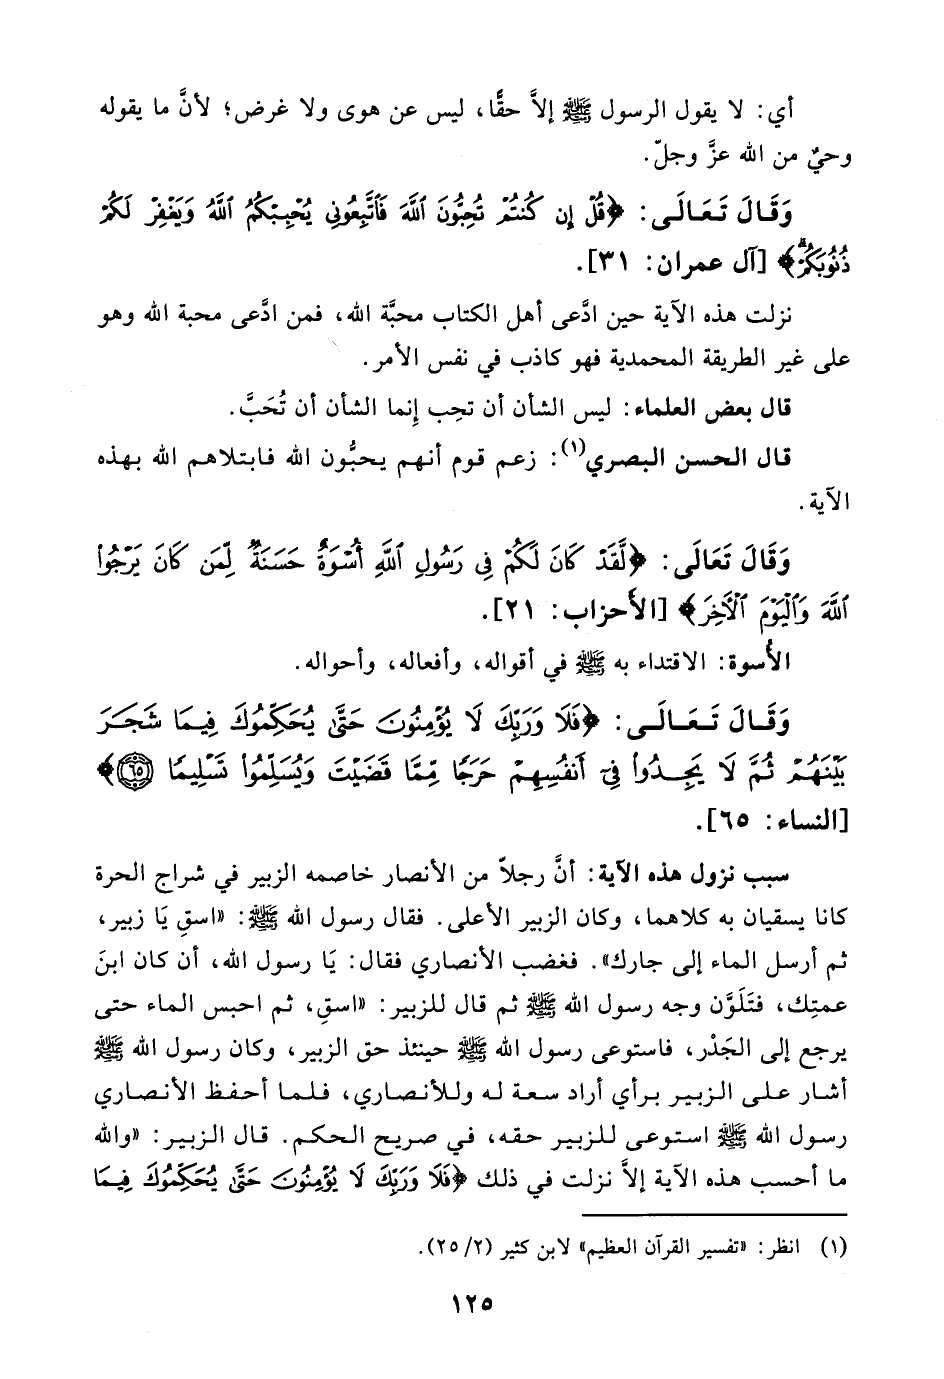 أي: لا يقول الرسول ﷺ إلاَّ حقًّا، ليس عن هوى ولا غرض؛ لأنَّ ما يقوله
وحيٌ من الله عزَّ وجلّ.
وَقَالَ تَعَالَى: ﴿قُلْ إِن كُنتُمْ تُحِبُّونَ ٱللَّهَ فَٱتَّبِعُونِى يُحْبِبْكُمُ ٱللَّهُ وَيَغْفِرْ لَكُمْ
ذُنُوبَكُمْۗ﴾ [آل عمران: ٣١].
نزلت هذه الآية حين ادَّعى أهل الكتاب محبَّة الله، فمن ادَّعى محبة الله وهو
على غير الطريقة المحمدية فهو كاذب في نفس الأمر.
قال بعض العلماء: ليس الشأن أن تحِب إنما الشأن أن تُحَبَّ.
قال الحسن البصري(١): زعم قوم أنهم يحبُّون الله فابتلاهم الله بهذه
الآية.
وَقَالَ تَعَالَى: ﴿لَّقَدْ كَانَ لَكُمْ فِى رَسُولِ ٱللَّهِ أُسْوَةٌ حَسَنَةٌ لِّمَن كَانَ يَرْجُوا۟
ٱللَّهَ وَٱلْيَوْمَ ٱلْآخِرَ﴾ [الأحزاب: ٢١].
الأُسوة: الاقتداء به ﷺ في أقواله، وأفعاله، وأحواله.
وَقَالَ تَعَالَى: ﴿فَلَا وَرَبِّكَ لَا يُؤْمِنُونَ حَتَّىٰ يُحَكِّمُوكَ فِيمَا شَجَرَ
بَيْنَهُمْ ثُمَّ لَا يَجِدُوا۟ فِىٓ أَنفُسِهِمْ حَرَجًا مِّمَّا قَضَيْتَ وَيُسَلِّمُوا۟ تَسْلِيمًا ۝٦٥﴾
[النساء: ٦٥].
سبب نزول هذه الآية: أنَّ رجلاً من الأنصار خاصمه الزبير في شراج الحرة
كانا يسقيان به كلاهما، وكان الزبير الأعلى. فقال رسول الله ﷺ: «اسقِ يَا زبير،
ثم أرسل الماء إلى جارك». فغضب الأنصاري فقال: يَا رسول الله، أن كان ابنَ
عمتِك، فتَلَوَّن وجه رسول الله ﷺ ثم قال للزبير: «اسقِ، ثم احبس الماء حتى
يرجع إلى الجَدْر، فاستوعى رسول الله ﷺ حينئذ حق الزبير، وكان رسول الله ﷺ
أشار على الزبير برأي أراد سعة له وللأنصاري، فلما أحفظ الأنصاري
رسول الله ﷺ استوعى للزبير حقه، في صريح الحكم. قال الزبير: «والله
ما أحسب هذه الآية إلاَّ نزلت في ذلك ﴿فَلَا وَرَبِّكَ لَا يُؤْمِنُونَ حَتَّىٰ يُحَكِّمُوكَ فِيمَا
(١) انظر: «تفسير القرآن العظيم» لابن كثير (٢/٢٥).
١٢٥